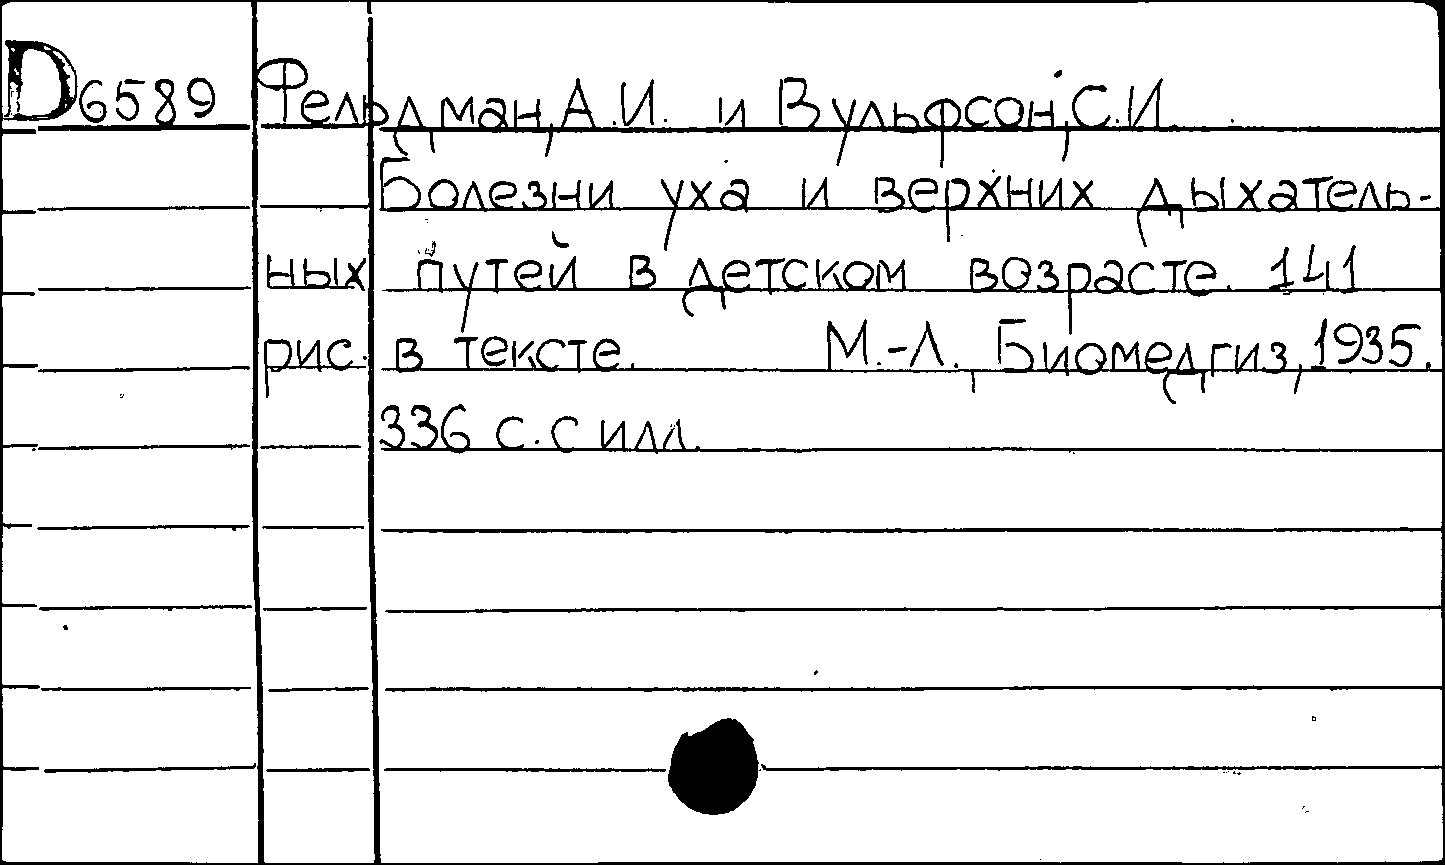 D6589 Фельдман, А.И. и Вульфсон, С.И.
Болезни уха и верхних дыхатель-
ных путей в детском возрасте. 141
рис. в тексте. М.-Л., Биомедгиз, 1935.
336 с. с илл.